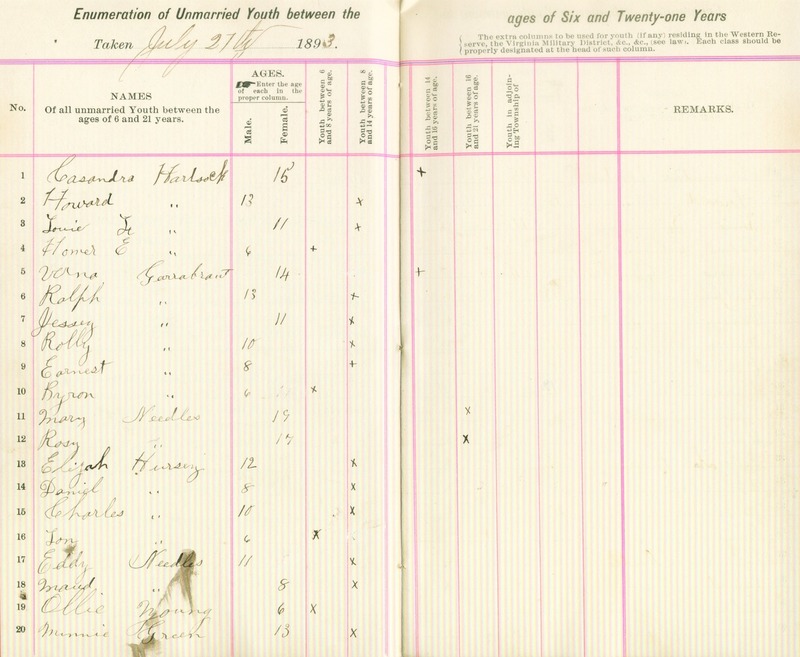 Enumeration of Unmarried Youth between the ages of Six and Twenty-one Years
Taken July 27th 1893.
The extra columns to be used for youth (if any) residing in the Western Re-
serve, the Virginia Military District, &c., &c., (see law). Each class should be
properly designated at the head of such column.
No.
NAMES
Of all unmarried Youth between the
ages of 6 and 21 years.
AGES.
Enter the age
of each in the
proper column.
Male.
Female.
Youth between 6
and 8 years of age.
Youth between 8
and 14 years of age.
Youth between 14
and 16 years of age.
Youth between 16
and 21 years of age.
Youth in adjoin-
ing Township of
REMARKS.
1 Casandra Hartsock 15 +
2 Howard " 13 x
3 Louie " 11 x
4 Homer E " 6 +
5 Verna Garrabrant 14 +
6 Ralph " 13 x
7 Jessey " 11 x
8 Rolly " 10 x
9 Earnest " 8 +
10 Byron " 6 x
11 Mary Needles 19 x
12 Rosy " 17 x
13 Elizah Hursey 12 x
14 Daniel " 8 x
15 Charles " 10 x
16 Lon " 6 x
17 Eddy Needles 11 x
18 Maud " 8 x
19 Ollie 6 x
20 Minnie Green 13 x